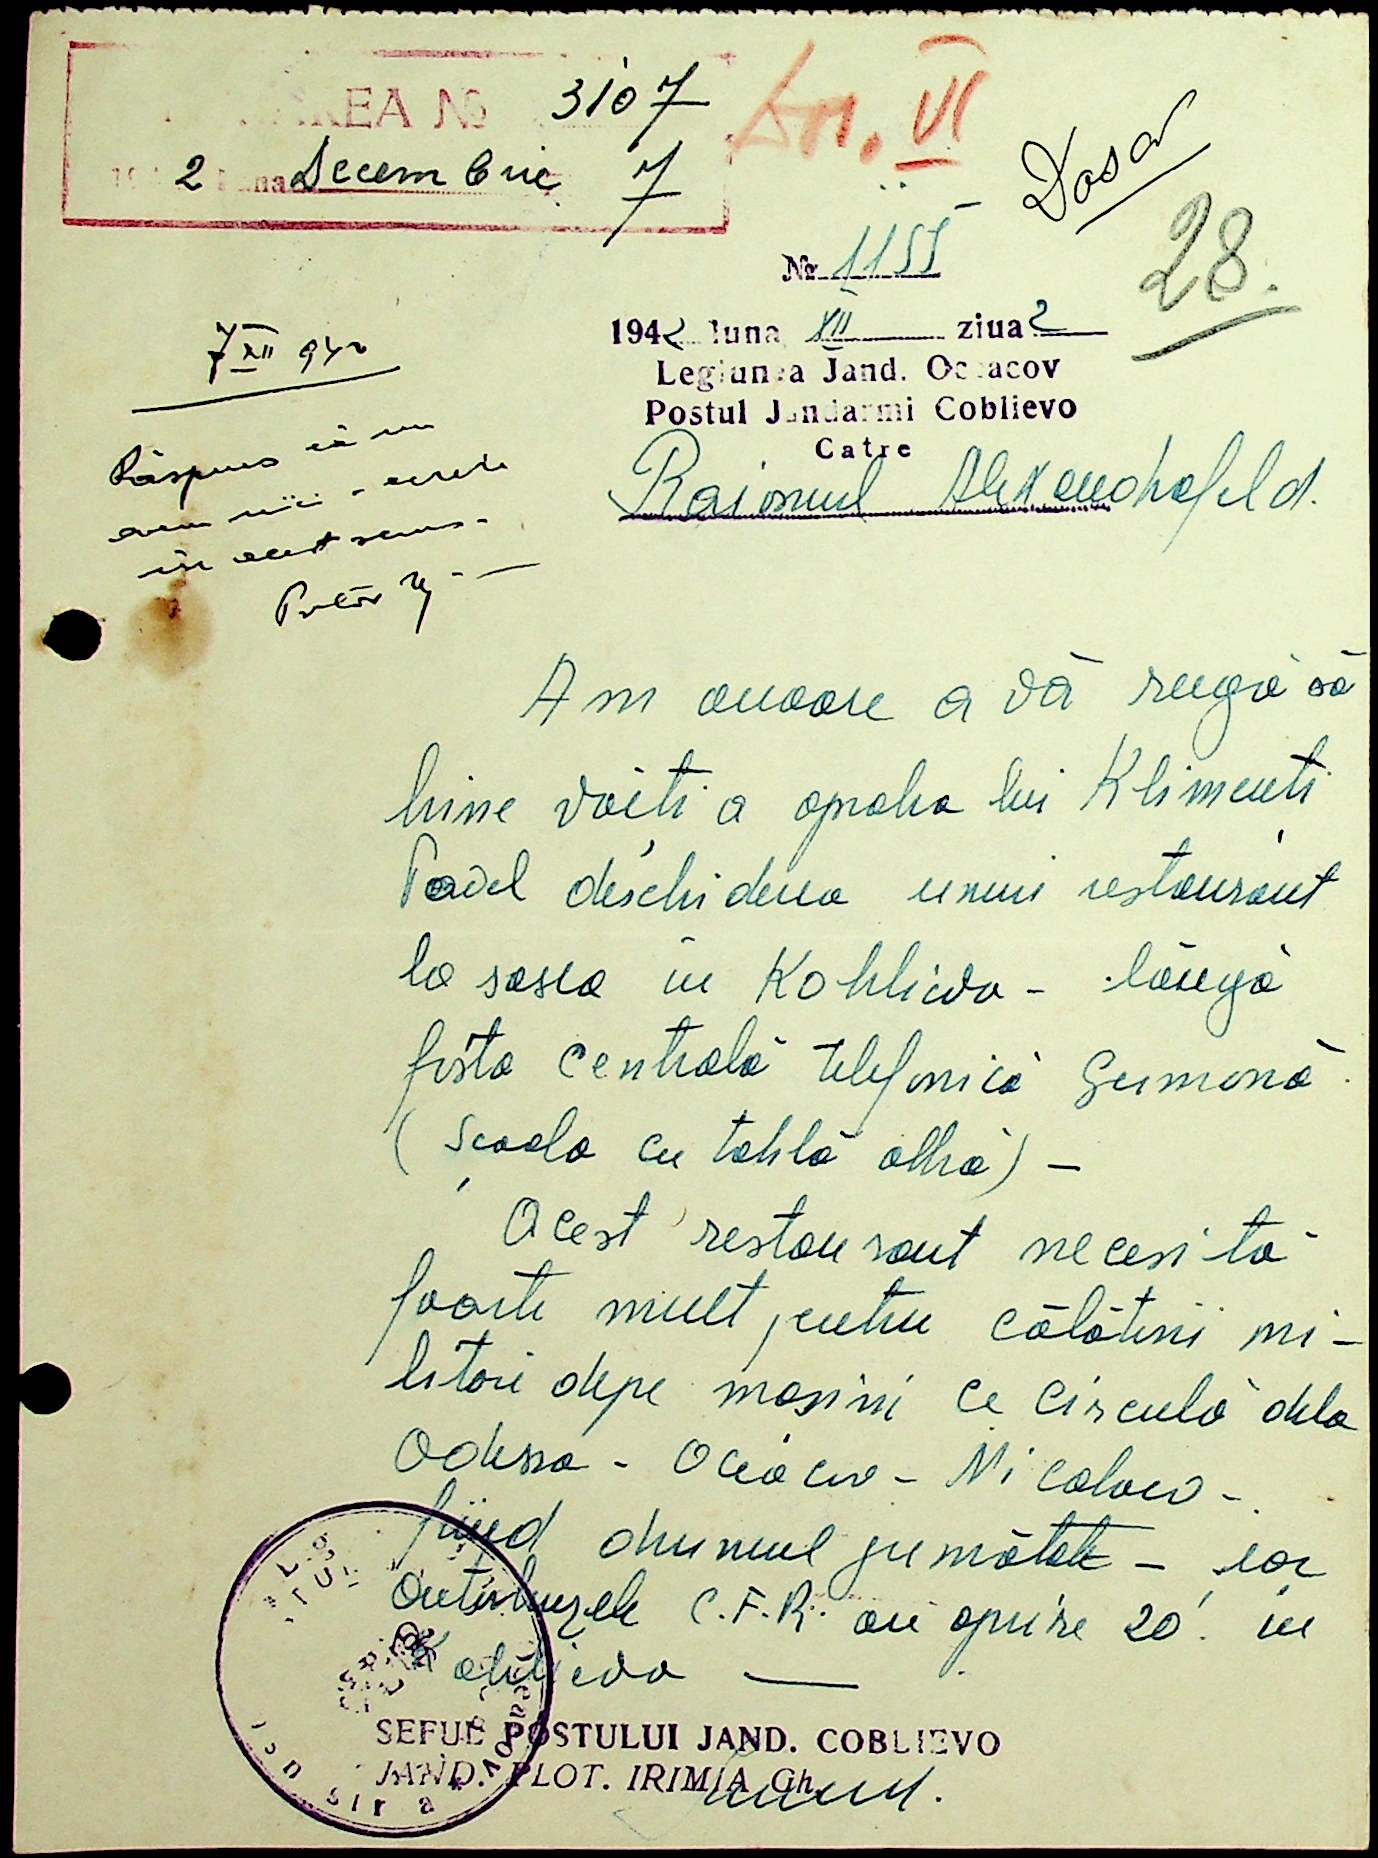 REA № 3107
2 Decembrie 7
Dn. VI
Dosar
28.
№ 1155
1942 luna XII ziua 2
Legiunea Jand. Oceacov
Postul Jandarmi Coblievo
Catre
Raionul Alexandrofeld.
7 XII 942
Răspuns că nu
avem nici-o cerere
în acest sens.-
Pretor
Am onoare a vă ruga să
bine voiți a aproba lui Klimenti
Pavel deschiderea unui restaurant
la sosea in Koblievo - lângă
fosta Centrală telefonică Germană.
(Școala cu tablă albă) -
Acest restaurant necesită
foarte mult pentru călătorii mi-
litari depe mașini ce circulă dela
Odessa - Oceacov - Nicolaev -
fiind drumul jumătate - iar
autobuzele C.F.R. au oprire 20'. in
Koblievo —
SEFUL POSTULUI JAND. COBLIEVO
JAND. PLOT. IRIMIA Gh.